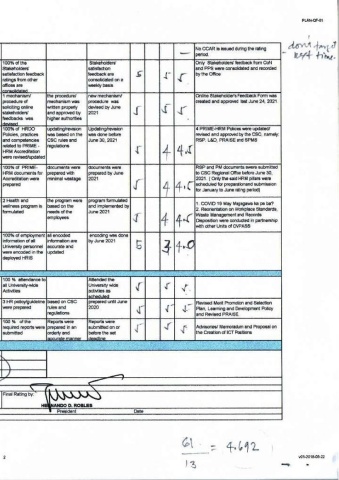 PLAN-QF-01
No CCAR is issued during the rating period.
don't forget next time.
100% of the Stakeholders' satisfaction feedback ratings from other offices are consolidated
Stakeholders' satisfaction feedback are consolidated on a weekly basis
5 5 5
Only Stakeholders' feedback from
and PPS were consolidated and recorded by the Office
1 mechanism/ procedure of soliciting online stakeholders' feedbacks was devised
the procedure/ mechanism was written properly and approved by higher authorities
new mechanism/ procedure was devised by June 2021
5 5 5
Online Stakeholder's Feedback Form was created and approved last June 24, 2021
100% of HRDO Policies, practices and competencies related to PRIME - HRM Accreditation were revised/updated
updating/revision was based on the CSC rules and regulations
Updating/revision was done before June 30, 2021
5 4 4.5
4 PRIME-HRM Policies were updated/ revised and approved by the CSC, namely RSP, L&D, PRAISE and SPMS
100% of PRIME- HRM documents for Accreditation were prepared
documents were prepared with minimal wastage
documents were prepared by June 2021
5 4 4.5
RSP and PM documents were submitted to CSC Regional Office before June 30, 2021. ( Only the said HRM pillars were scheduled for preparation and submission for January to June rating period)
2 Health and wellness program is formulated
the program were based on the needs of the employees
program formulated and implemented by June 2021
5 4 4.5
1. COVID 19 May Magagawa ka pa ba?
2. Reorientation on Workplace Standards, Waste Management and Records Disposition were conducted in partnership with other Units of OVPASS
100% of employment information of all University personnel were encoded in the deployed HRIS
all encoded information are accurate and updated
encoding was done by June 2021
5 3 4.0
100 % attendance to all University-wide Activities
Attended the University wide activities as scheduled
5 5 5
3 HR policy/guideline were prepared
based on CSC rules and regulations
prepared until June 2020
5 5 5
Revised Merit Promotion and Selection Plan, Learning and Development Policy and Revised PRAISE
100 % of the required reports were submitted
Reports were prepared in an orderly and accurate manner
Reports were submitted on or before the set deadline
5 5 5
Advisories/ Memorandum and Proposal on the Creation of ICT Positions
Final Rating by:
HERNANDO D. ROBLES
President
Date
61 = 4.692
13
2
v01-2018.08.02